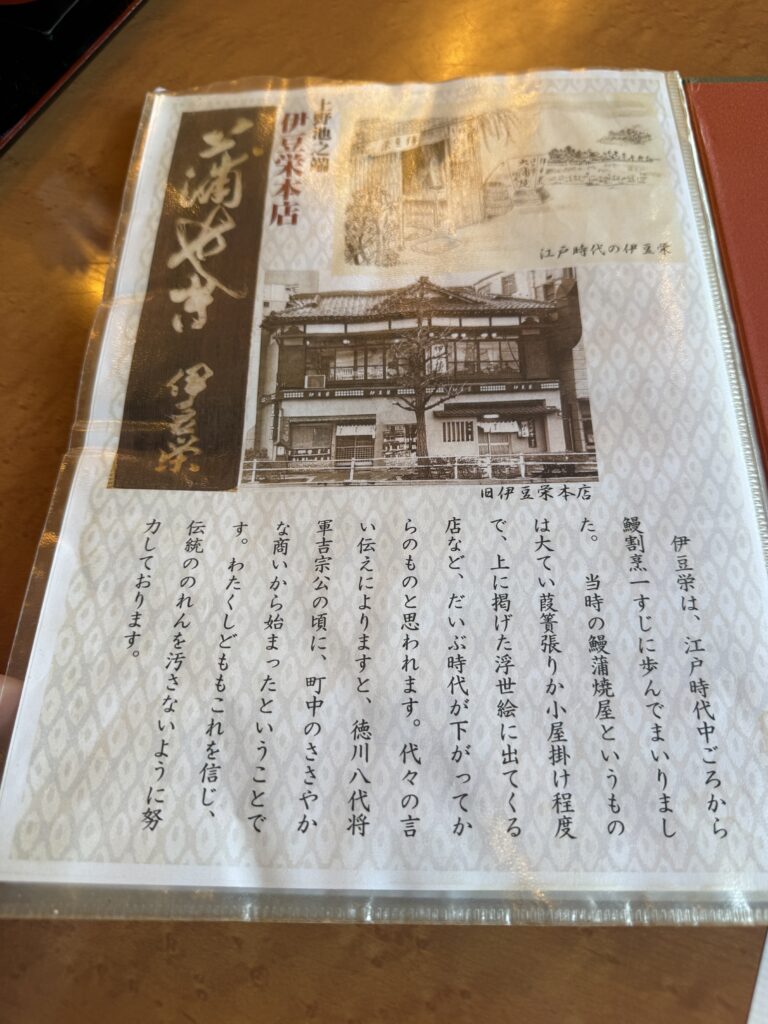 上野池之端
伊豆栄本店
蒲やき
伊豆栄
江戸時代の伊豆栄
伊豆栄
伊豆栄
伊豆栄
旧伊豆栄本店
伊豆栄は、江戸時代中ごろから
鰻割烹一すじに歩んでまいりまし
た。　当時の鰻蒲焼屋というもの
は大てい葭簀張りか小屋掛け程度
で、上に掲げた浮世絵に出てくる
店など、だいぶ時代が下がってか
らのものと思われます。代々の言
い伝えによりますと、徳川八代将
軍吉宗公の頃に、町中のささやか
な商いから始まったということで
す。わたくしどももこれを信じ、
伝統ののれんを汚さないように努
力しております。